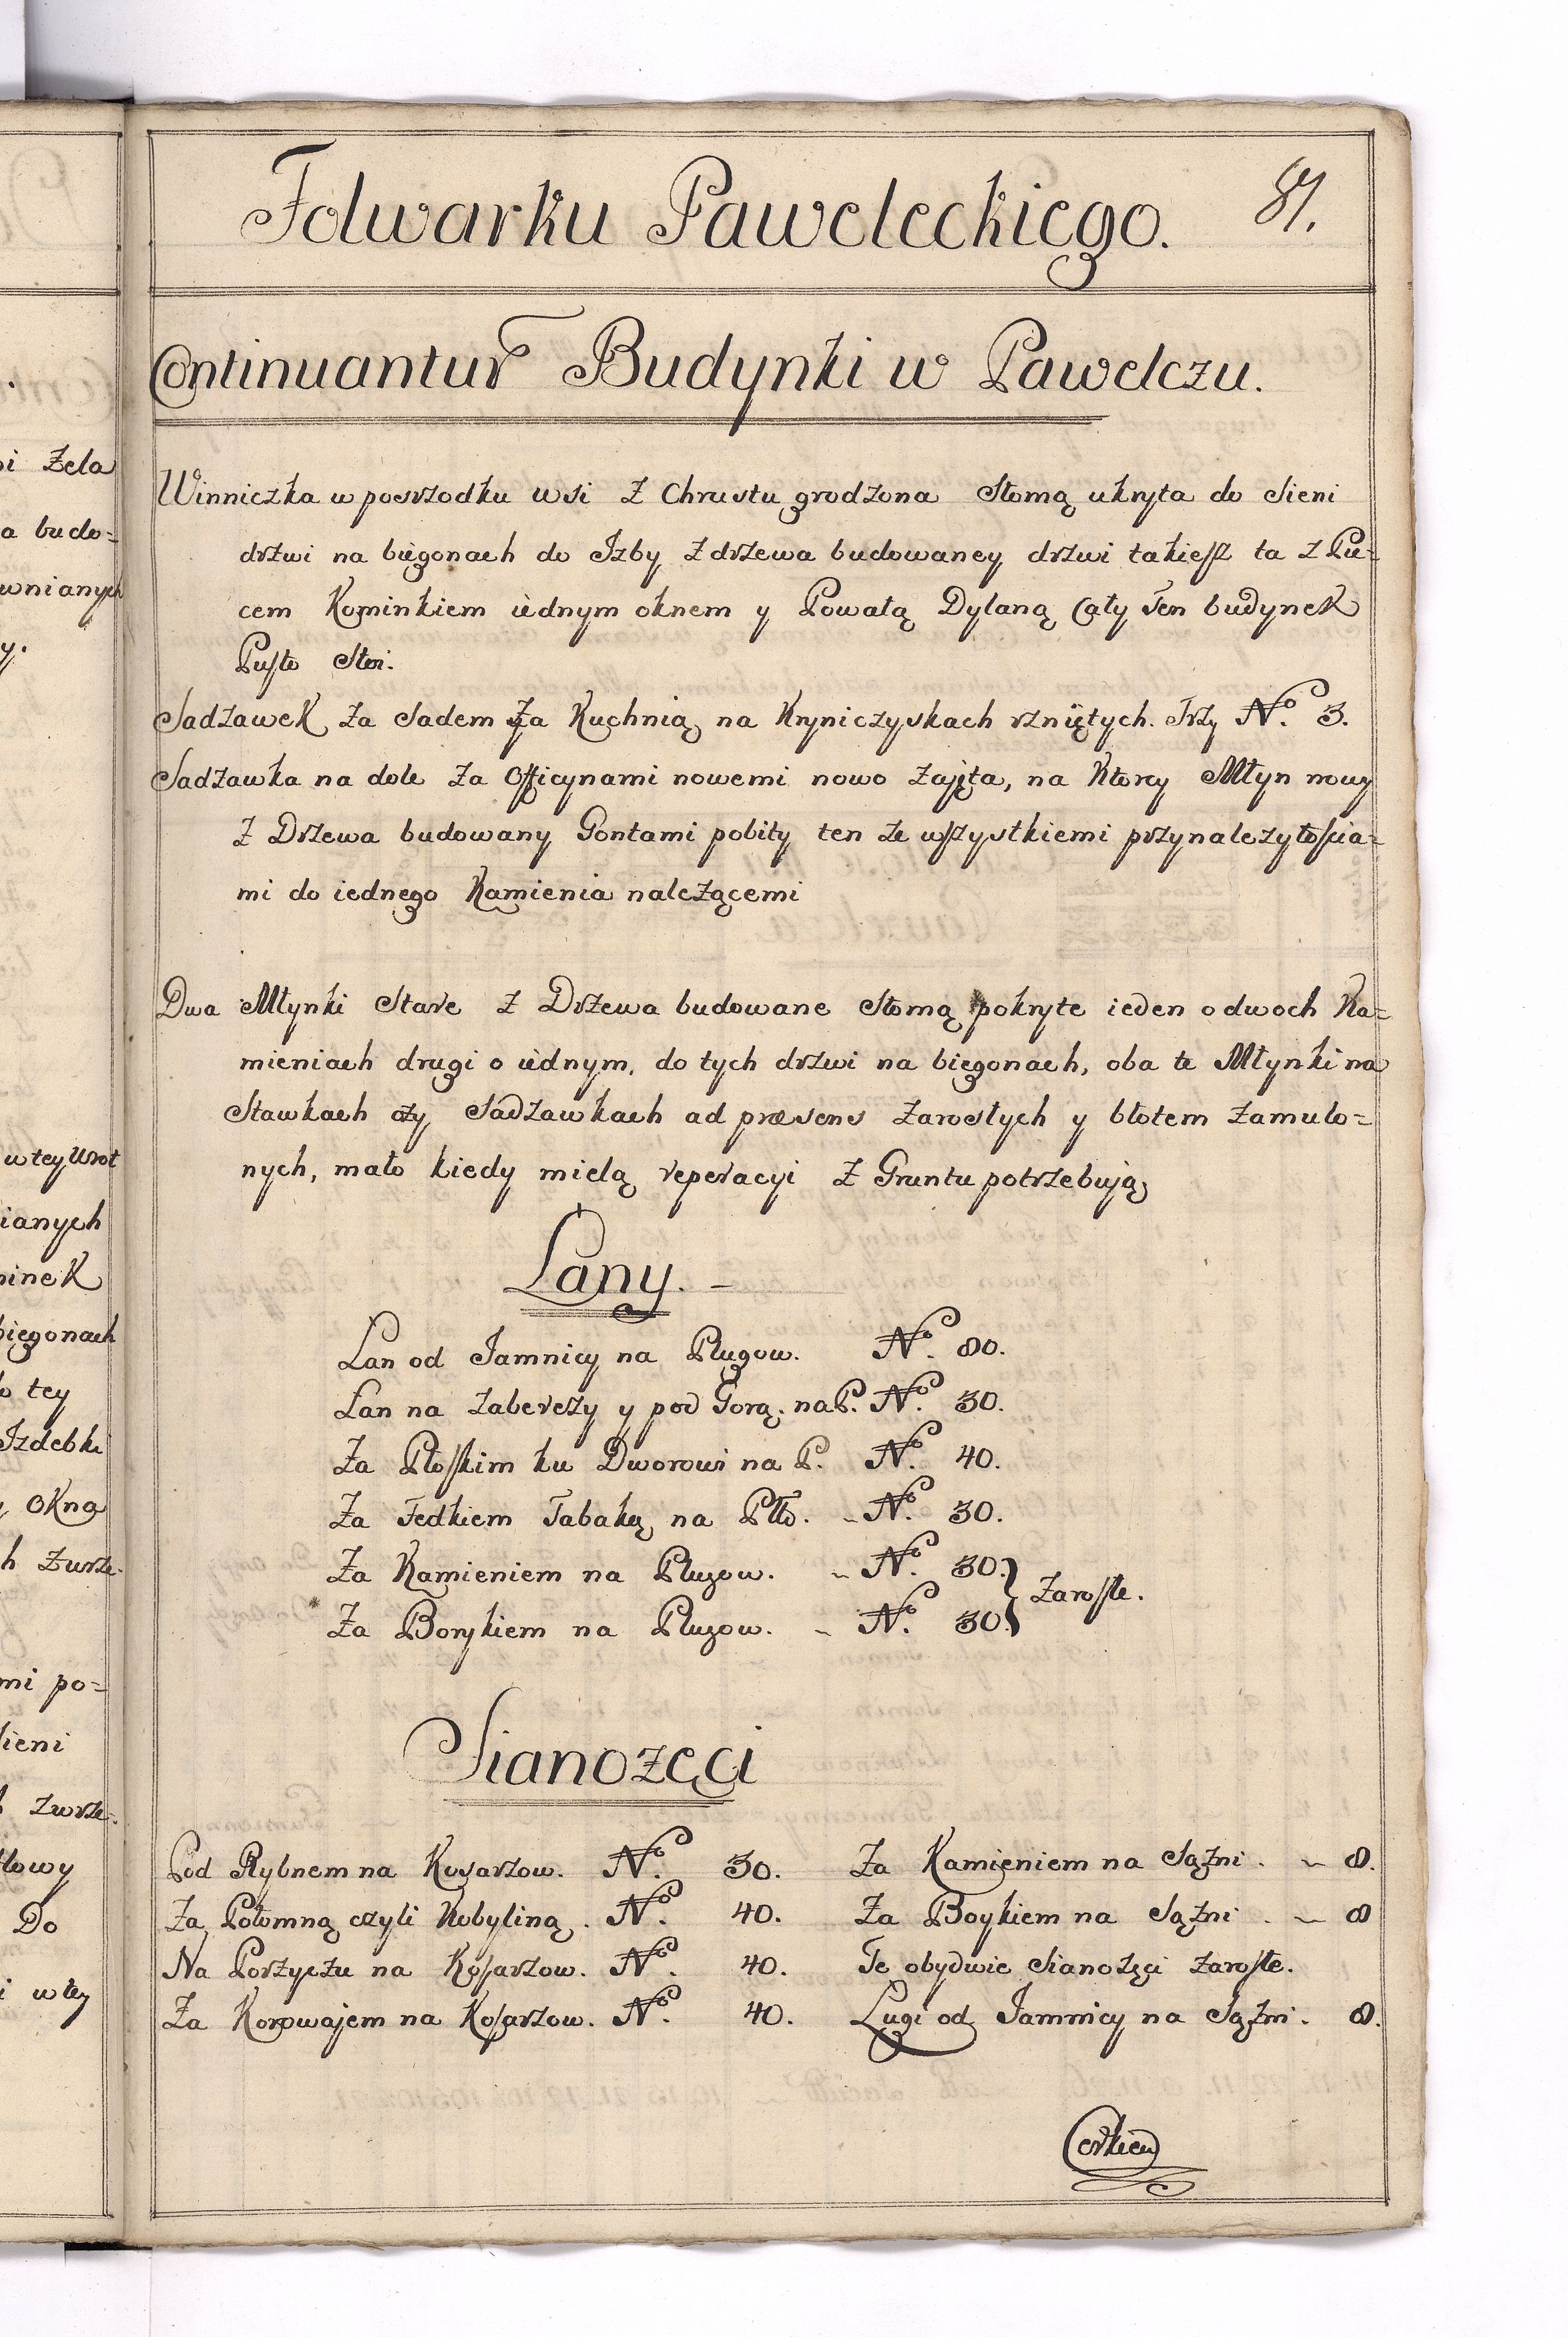 Folwarku Paweleckiego. 87.
Continuantur Budynki w Pawelczu.
Winniczka w posrzodku wsi z Chrustu grodzona Słomą ukryta do Sieni
drzwi na biegonach do Jzby z drzewa budowaney drzwi takiesz ta z Pie=
cem Kominkiem iednym oknem y Powałą Dylaną Cały Ten budynek
Pusto Stoi.
Sadzawek za Sadem za Kuchnią na Kryniczyskach rzniętych. Trzy No. 3.
Sadzawka na dole za Officynami nowemi nowo zajęta, na Ktorey Młyn nowy
z Drzewa budowany Gontami pobity ten ze wszystkiemi przynalezytościa=
mi do iednego Kamienia nalezącemi
Dwa Młynki Stare z Drzewa budowane Słomą pokryte ieden o dwoch Ka=
mieniach drugi o iednym, do tych drzwi na biegonach, oba te Młynki na
Stawkach czy Sadzawkach ad præsens zarosłych y błotem zamulo=
nych, mało kiedy mielą reperacyi z Gruntu potrzebują
Łany. –
Łan od Jamnicy na Pługow. No. 80.
Łan na zaberezy y pod Gorą. na P. No. 30.
Za Płoskim ku Dworowi na P. No. 40.
Za Fedkiem Tabaką na Płł. No. 30.
Za Kamieniem na Pługow. No. 30.
Za Borykiem na Pługow. No. 30. } Zarosłe.
Sianozęci
Pod Rybnem na Kosarzow. No. 30. Za Kamieniem na Sążni. 8.
Za Połomną czyli Kobyliną. No. 40. Za Boykiem na Sążni. 8
Na Porzyczu na Kosarzow. No. 40. Te obydwie Sianozęci zarosłe.
Za Korowajem na Kosarzow. No. 40. Ługi od Jamnicy na Sążni. 8.
Cerkiew
i Zela
a budo=
wnianych
y.
w tey Wrot
ianych
minek
biegonach
o tey
Jzdebki
okna
h zwrze=
mi po=
Sieni
zwrze=
łowy
Do
i w tey